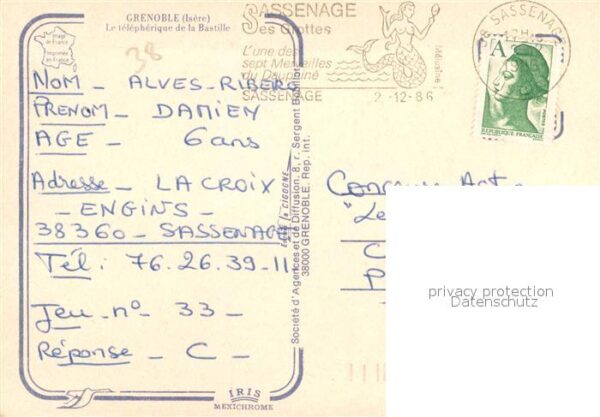 GRENOBLE (Isère)
Le téléphérique de la Bastille
Image
de France
38
NOM - ALVES-RIBERO
PRENOM - DAMIEN
AGE - 6 ans
Adresse - LA CROIX
- ENGINS -
38360 - SASSENAGE
Tél: 76.26.39-11
Jeu n° 33 -
Réponse - C -
IRIS
MEXICHROME
Société d'Agences et de Diffusion, 8, r. Sergent
38000 GRENOBLE. Rep. int.
SASSENAGE
Ses Grottes
L'une des
sept Merveilles
du Dauphiné
SASSENAGE
2-12-86
SASSENAGE
A
REPUBLIQUE FRANÇAISE
Concours
privacy protection
Datenschutz